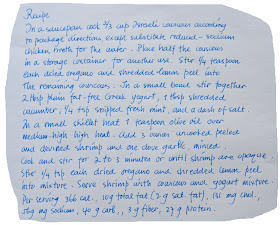 Recipe
In a saucepan cook 2/3 cup Israeli couscous according
to package directions except substitute reduced-sodium
chicken broth for the water. Place half the couscous
in a storage container for another use. Stir 1/4 teaspoon
each dried oregano and shredded lemon peel into
the remaining couscous. In a small bowl stir together
2 tbsp plain fat-free Greek yogurt, 1 tbsp shredded
cucumber, 1/4 tsp snipped fresh mint, and a dash of salt.
In a small skillet heat 1 teaspoon olive oil over
medium-high high heat. Add 3 ounces uncooked peeled
and deveined shrimp and one clove garlic, minced.
Cook and stir for 2 to 3 minutes or until shrimp are opaque.
Stir 1/4 tsp each dried oregano and shredded lemon peel
into mixture. Serve shrimp with couscous and yogurt mixture
Per serving 366 cal, 10g total fat (2 g sat. fat), 131 mg chol.,
569 mg sodium, 40 g carb., 3 g fiber, 27 g protein.